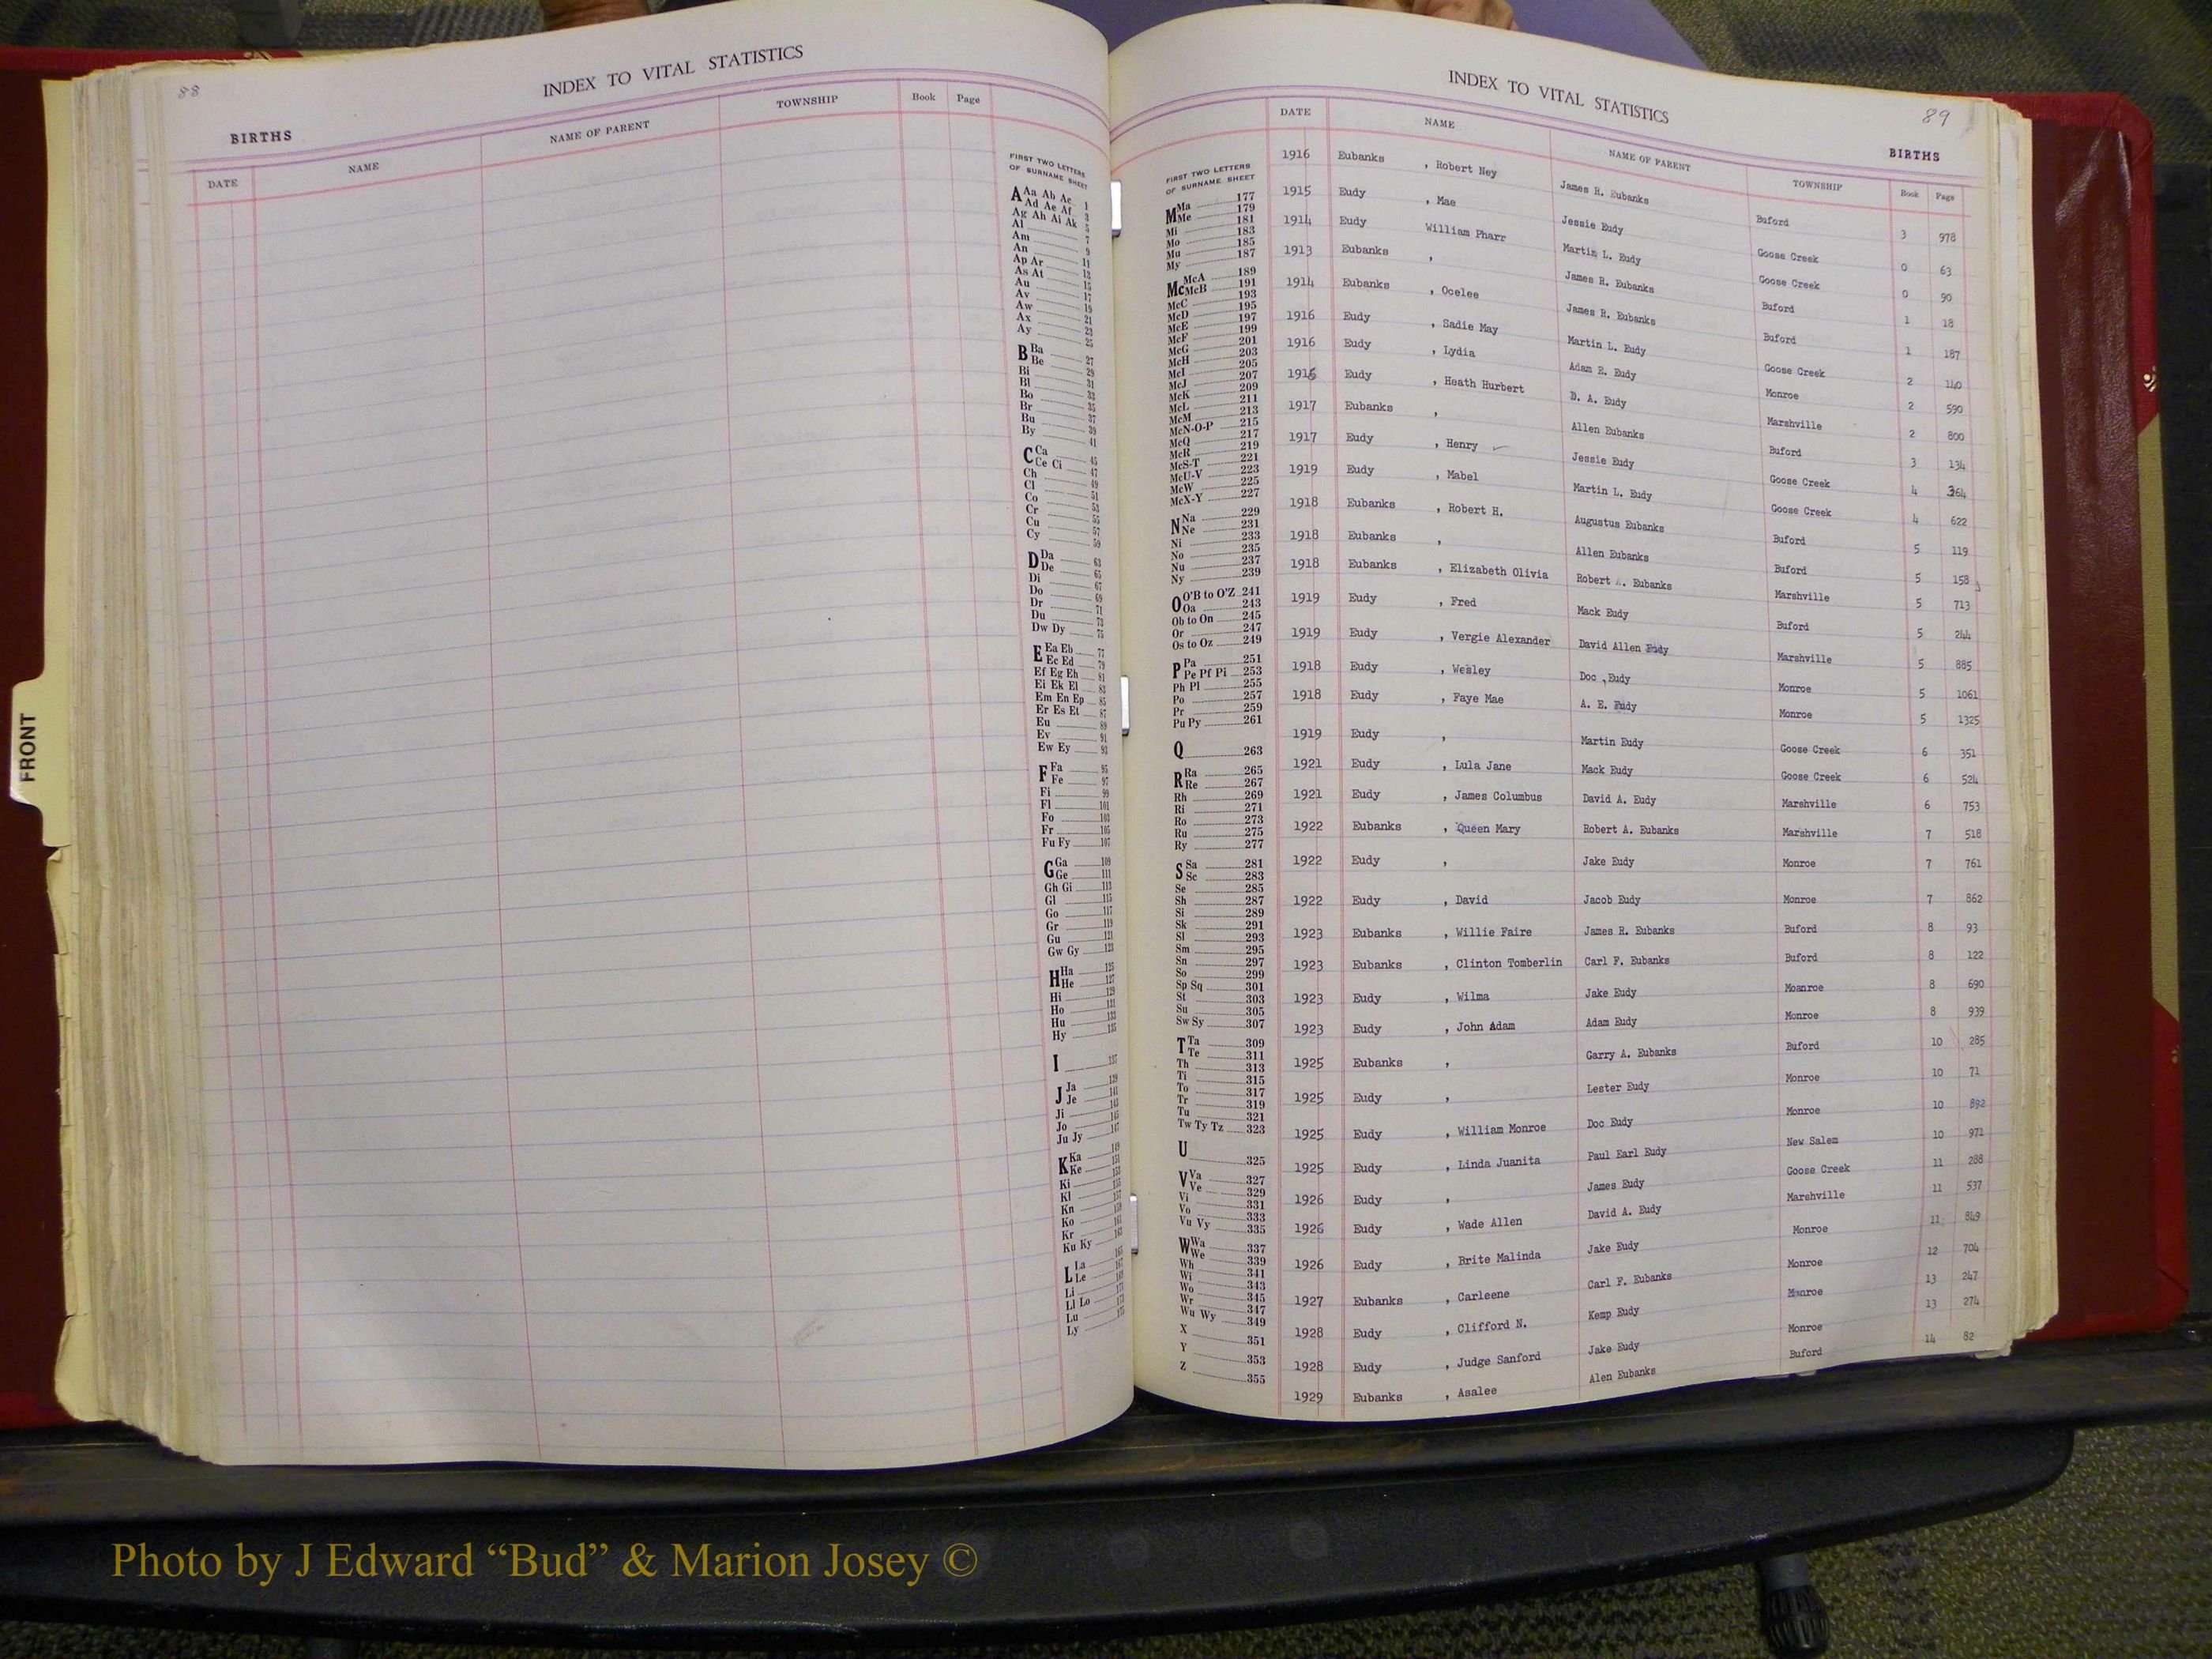 88
INDEX TO VITAL STATISTICS
BIRTHS
DATE NAME NAME OF PARENT TOWNSHIP Book Page
FIRST TWO LETTERS
OF SURNAME SHEET
A Aa Ab Ac 1
Ad Ae Af 3
Ag Ah Ai Ak 5
Al 7
Am 9
An 11
Ap Ar 13
As At 15
Au 17
Av 19
Aw 21
Ax 23
Ay 25
B Ba 27
Be 29
Bi 31
Bl 33
Bo 35
Br 37
Bu 39
By 41
C Ca 45
Ce Ci 47
Ch 49
Cl 51
Co 53
Cr 55
Cu 57
Cy 59
D Da 63
De 65
Di 67
Do 69
Dr 71
Du 73
Dw Dy 75
E Ea Eb 77
Ec Ed 79
Ef Eg Eh 81
Ei Ek El 83
Em En Ep 85
Er Es Et 87
Eu 89
Ev 91
Ew Ey 93
F Fa 95
Fe 97
Fi 99
Fl 101
Fo 103
Fr 105
Fu Fy 107
G Ga 109
Ge 111
Gh Gi 113
Gl 115
Go 117
Gr 119
Gu 121
Gw Gy 123
H Ha 125
He 127
Hi 129
Ho 131
Hu 133
Hy 135
I 137
J Ja 139
Je 141
Ji 143
Jo 145
Ju Jy 147
K Ka 149
Ke 151
Ki 153
Kl 155
Kn 159
Ko 161
Kr 163
Ku Ky
L La 165
Le 167
Li 169
Ll Lo 171
Lu 173
Ly 175
FRONT
INDEX TO VITAL STATISTICS
89
BIRTHS
DATE NAME NAME OF PARENT TOWNSHIP Book Page
FIRST TWO LETTERS
OF SURNAME SHEET
M Ma 177
Me 179
Mi 181
Mo 183
Mu 185
My 187
Mc McA 189
McB 191
McC 193
McD 195
McE 197
McF 199
McG 201
McH 203
McI 205
McJ 207
McK 209
McL 211
McM 213
McN-O-P 215
McQ 217
McR 219
McS-T 221
McU-V 223
McW 225
McX-Y 227
N Na 229
Ne 231
Ni 233
No 235
Nu 237
Ny 239
O O'B to O'Z 241
Oa 243
Ob to On 245
Or 247
Os to Oz 249
P Pa 251
Pe Pf Pi 253
Ph Pl 255
Po 257
Pr 259
Pu Py 261
Q 263
R Ra 265
Re 267
Rh 269
Ri 271
Ro 273
Ru 275
Ry 277
S Sa 281
Sc 283
Se 285
Sh 287
Si 289
Sk 291
Sl 293
Sm 295
Sn 297
So 299
Sp Sq 301
St 303
Su 305
Sw Sy 307
T Ta 309
Te 311
Th 313
Ti 315
To 317
Tr 319
Tu 321
Tw Ty Tz 323
U 325
V Va 327
Ve 329
Vi 331
Vo 333
Vu Vy 335
W Wa 337
We 339
Wh 341
Wi 343
Wo 345
Wr 347
Wu Wy 349
X 351
Y 353
Z 355
1916 Eubanks , Robert Ney James R. Eubanks Buford 3 978
1915 Eudy , Mae Jessie Eudy Goose Creek 0 63
1914 Eudy William Pharr Martin L. Eudy Goose Creek 0 90
1913 Eubanks , James R. Eubanks Buford 1 18
1914 Eubanks , Ocelee James R. Eubanks Buford 1 187
1916 Eudy , Sadie May Martin L. Eudy Goose Creek 2 140
1916 Eudy , Lydia Adam E. Eudy Monroe 2 590
1916 Eudy , Heath Hurbert D. A. Eudy Marshville 2 800
1917 Eubanks , Allen Eubanks Buford 3 134
1917 Eudy , Henry Jessie Eudy Goose Creek 4 364
1919 Eudy , Mabel Martin L. Eudy Goose Creek 4 622
1918 Eubanks , Robert H. Augustus Eubanks Buford 5 119
1918 Eubanks , Allen Eubanks Buford 5 158
1918 Eubanks , Elizabeth Olivia Robert A. Eubanks Marshville 5 713
1919 Eudy , Fred Mack Eudy Buford 5 244
1919 Eudy , Vergie Alexander David Allen Eudy Marshville 5 885
1918 Eudy , Wesley Doc , Eudy Monroe 5 1061
1918 Eudy , Faye Mae A. E. Eudy Monroe 5 1325
1919 Eudy , Martin Eudy Goose Creek 6 351
1921 Eudy , Lula Jane Mack Eudy Goose Creek 6 524
1921 Eudy , James Columbus David A. Eudy Marshville 6 753
1922 Eubanks , Queen Mary Robert A. Eubanks Marshville 7 518
1922 Eudy , Jake Eudy Monroe 7 761
1922 Eudy , David Jacob Eudy Monroe 7 862
1923 Eubanks , Willie Faire James R. Eubanks Buford 8 93
1923 Eubanks , Clinton Tomberlin Carl F. Eubanks Buford 8 122
1923 Eudy , Wilma Jake Eudy Moanroe 8 690
1923 Eudy , John Adam Adam Eudy Monroe 8 939
1925 Eubanks , Garry A. Eubanks Buford 10 285
1925 Eudy , Lester Eudy Monroe 10 71
1925 Eudy , William Monroe Doc Eudy Monroe 10 892
1925 Eudy , Linda Juanita Paul Earl Eudy New Salem 10 971
1926 Eudy , James Eudy Goose Creek 11 288
1926 Eudy , Wade Allen David A. Eudy Marshville 11 537
1926 Eudy , Brite Malinda Jake Eudy Monroe 11 849
1927 Eubanks , Carleene Carl F. Eubanks Monroe 12 704
1928 Eudy , Clifford N. Kemp Eudy Monroe 13 247
1928 Eudy , Judge Sanford Jake Eudy Monroe 13 274
1929 Eubanks , Asalee Alen Eubanks Buford 14 82
Photo by J Edward “Bud” & Marion Josey ©